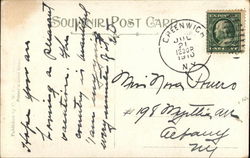 SOUVENIR POST CARD
GREENWICH
JUL
21
1230P
1910
N.Y.
Hope you are
having a pleasant
vacation. The
country is beautiful
I am enjoying
very much. F. E. W.
Miss Nora Powers
#198 Myrtle Ave
Albany
NY